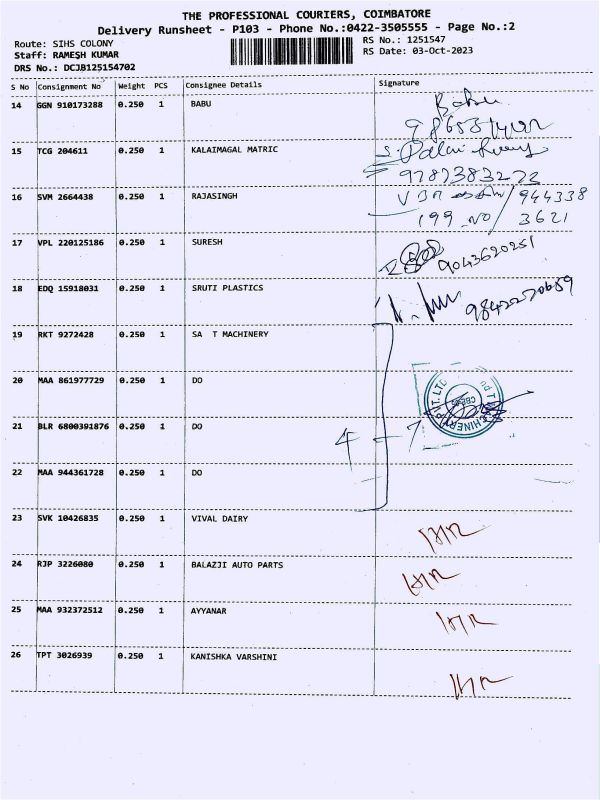 THE PROFESSIONAL COURIERS, COIMBATORE
Delivery Runsheet - P103 - Phone No.:0422-3505555 - Page No.:2
Route: SIHS COLONY RS No.: 1251547
Staff: RAMESH KUMAR RS Date: 03-Oct-2023
DRS No.: DCJB125154702
S No Consignment No Weight PCS Consignee Details Signature
14 GGN 910173288 0.250 1 BABU Babu
15 TCG 204611 0.250 1 KALAIMAGAL MATRIC
9787383273
16 SVM 2664438 0.250 1 RAJASINGH 944338
199 NO 3621
17 VPL 220125186 0.250 1 SURESH 9043620251
18 EDQ 15918031 0.250 1 SRUTI PLASTICS
19 RKT 9272428 0.250 1 SA T MACHINERY
20 MAA 861977729 0.250 1 DO
21 BLR 6800391876 0.250 1 DO
22 MAA 944361728 0.250 1 DO
23 SVK 10426835 0.250 1 VIVAL DAIRY
24 RJP 3226080 0.250 1 BALAZJI AUTO PARTS
25 MAA 932372512 0.250 1 AYYANAR
26 TPT 3026939 0.250 1 KANISHKA VARSHINI